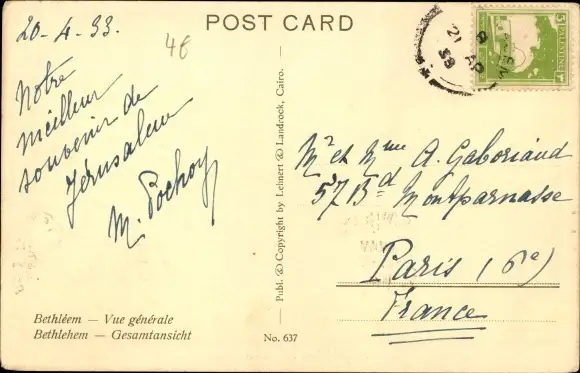 POST CARD
20-4-33.
4€
Notre
meilleur
souvenir de
Jérusalem
M. Pochoy
Bethléem — Vue générale
Bethlehem — Gesamtansicht
No. 637
Publ. & Copyright by Lehnert & Landrock, Cairo.
PALESTINE
21 AP
33
Mr et Mme A. Gaboriaud
57 Bd Montparnasse
Paris (6e)
France